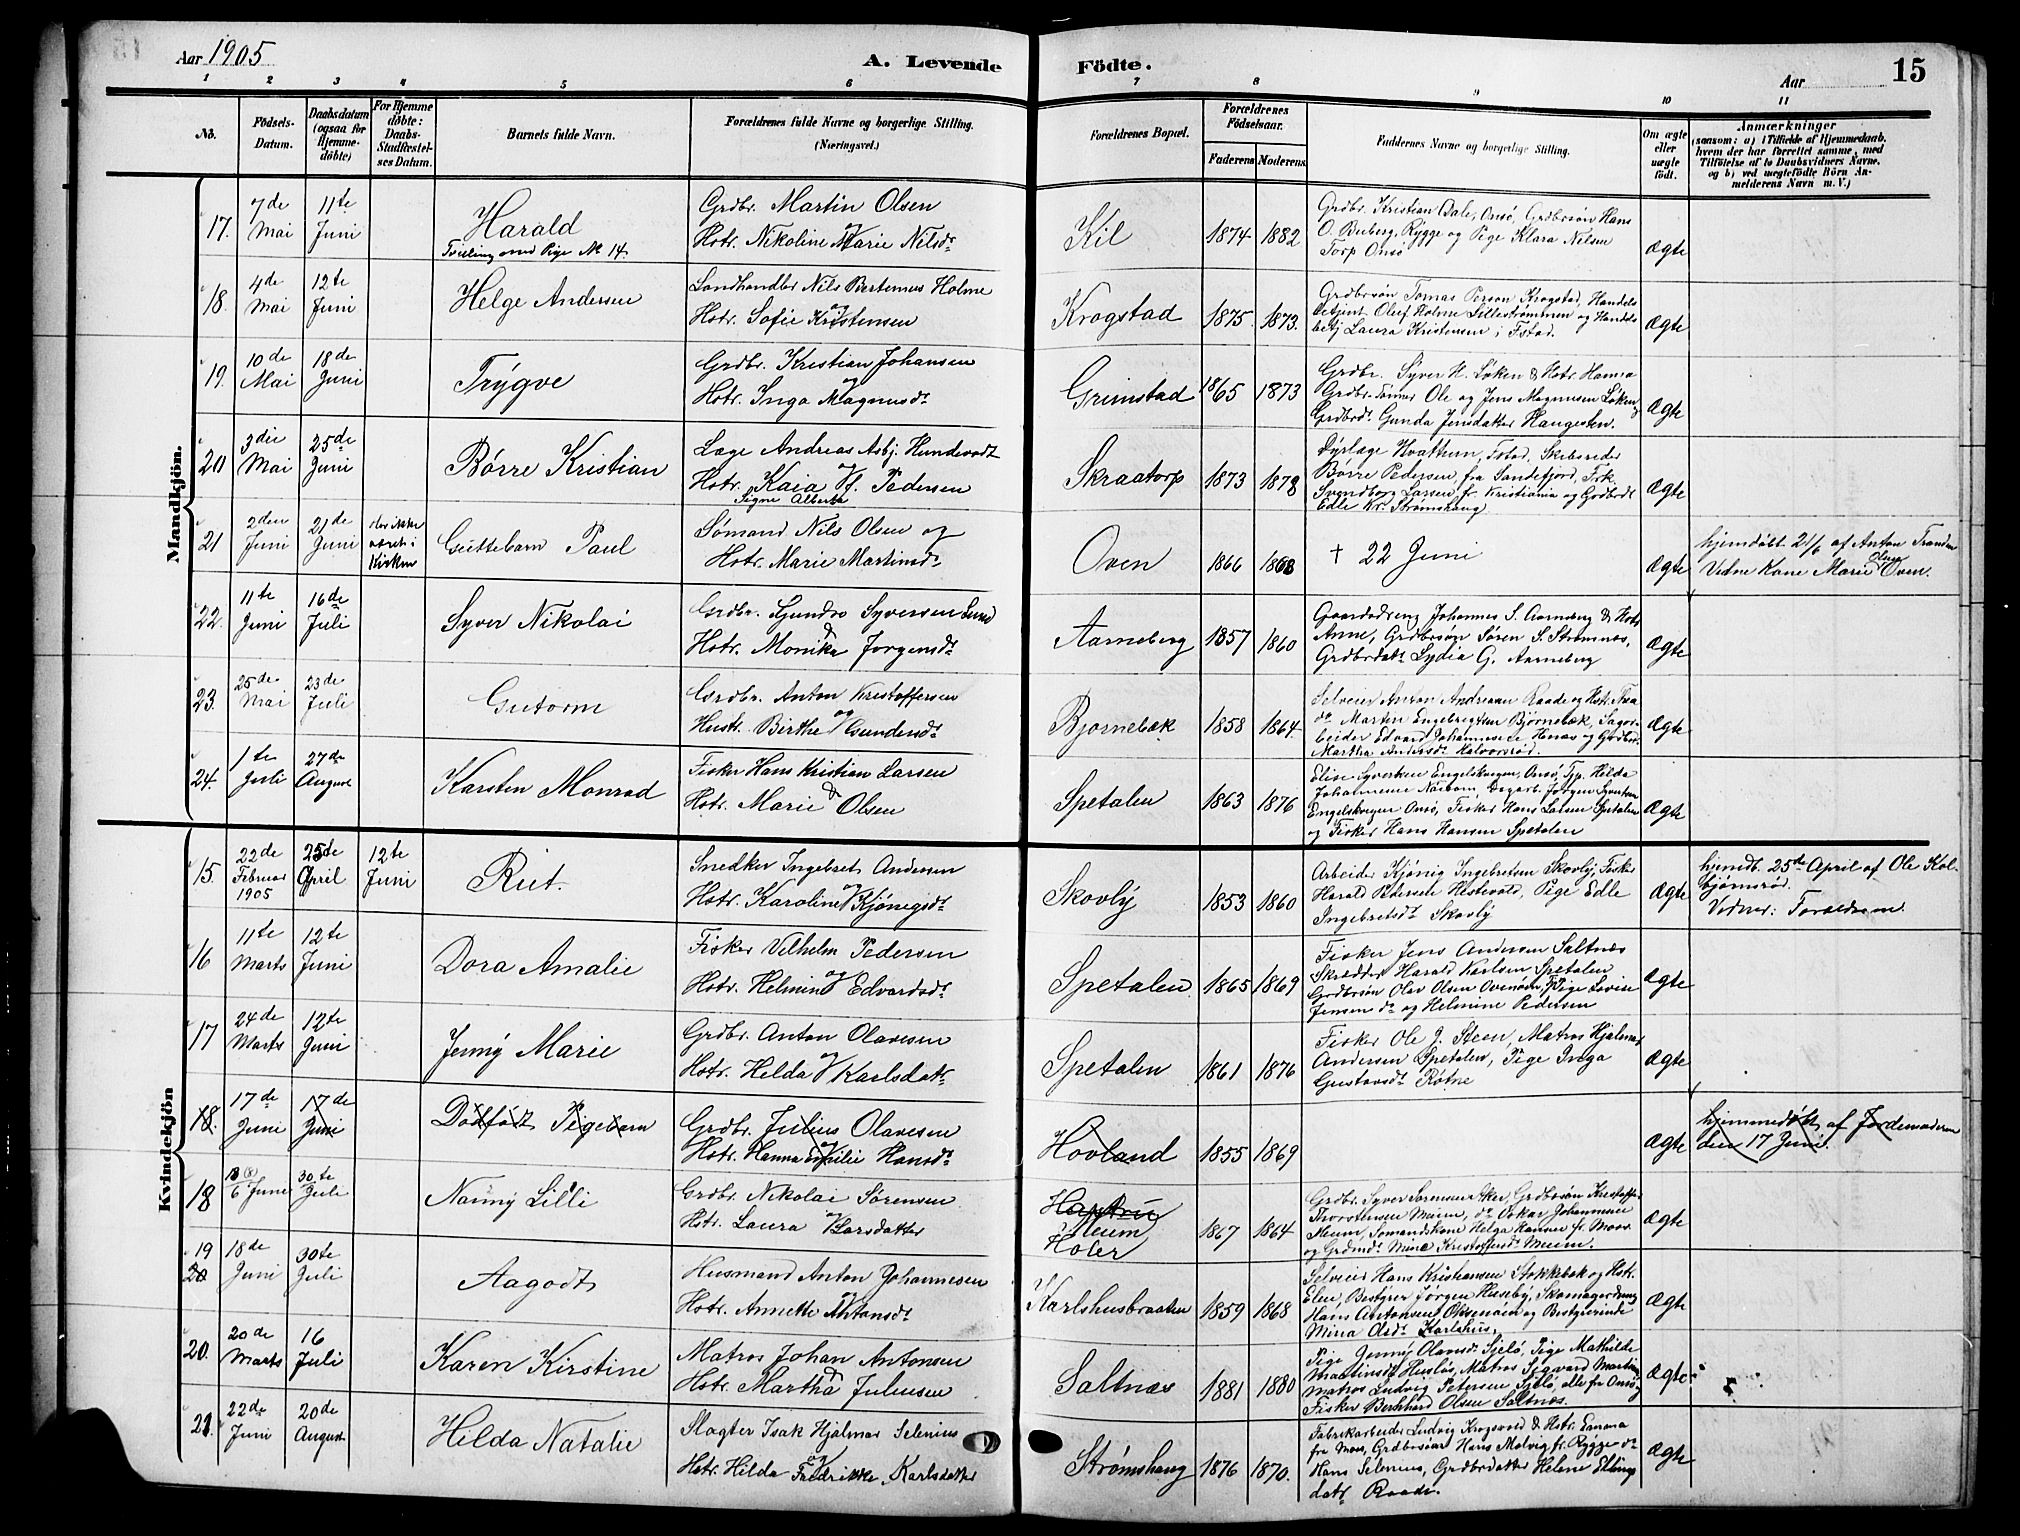 Aar 1905
A. Levende Födte.
Aar
15
1 2 3 4 5 6 7 8 9 10 11
No.
Födsels-
Datum.
Daabsdatum
(ogsaa for
Hjemme-
döbte)
For Hjemme
döbte:
Daabs-
Stadfæstel-
ses Datum.
Barnets fulde Navn.
Forældrenes fulde Navne og borgerlige Stilling.
(Næringsvei.)
Forældrenes Bopæl.
Forældrenes
Födselsaar.
Faderens
Moderens
Faddernes Navne og borgerlige Stilling.
Om ægte
eller
uægte
födt.
Anmærkninger
(saasom: a) i Tilfælde af Hjemmedaab,
hvem der har forrettet samme, med
Tilföielse af to Daabsvidners Navne.
og b) ved uægtefödte Börn An-
melderens Navn m. V.)
Mandkjön.
17. 7de Mai 11te Juni
Harald
Tvilling med Pige No 14
Grdbr. Martin Olsen
og
Hstr. Nikoline Marie Nilsdr
Kil 1874 1882
Grdbr. Kristian Dale, Onsö, Grdbrsön Hans
O. Buberg, Rygge og Pige Klara Nilsen
Torp Onsö
Ægte
18. 4de Mai 12te Juni
Helge Andersen
Landhandler Nils Bertenius Holme
og
Hstr. Sofie Kristensen
Krogstad 1875 1873.
Grdbrsön Tomas Person Krogstad, Handels
betjent Oluf Holme Lillestrømmen og Handels
betj Laura Kristensen i Fstad.
Ægte
19. 10de Mai 18de Juni
Trygve
Grdbr. Kristian Johansen
og
Hstr. Inga Magnusdr
Grimstad 1865 1873
Grdbr. Syver H. Løken & Hstr. Hanna
Grdbr.sønner Ole og Jens Magnusen Løken,
Grdbrdr. Gunda Jensdatter Haugesten.
Ægte
20 3die Mai 25de Juni
Børre Kristian
Læge Andreas Asbj. Hundevadt
og
Hstr. Kaia Vf. Pedersen
Signe Alberta
Skraatorp 1873 1878
Dyrlæge Hvattum, Fstad, Skibsreder
Børre Pedersen, fra Sandefjord, Frk.
Svendborg Larsen fr Kristiania og Grdbrdr
Edle Kr. Strømshaug
Ægte
21 2den Juni 21de Juni
har ikke
været i
Kirken
Guttebarn Paul
Sømand Nils Olsen og
Hstr. Marie Martinsdr
Oven 1866 1868
† 22 Juni
Ægte
hjemdøbt 21/6 af Anton Tranden
Olsen
Vidne Kone Marie Oven.
22. 11te Juni 16de Juli
Syver Nikolai
Grdbr. Gundro Syversen Lund
&
Hstr. Monika Jorgensdr
Aarneberg 1857 1860
Gaardsdreng Johannes S. Aarneberg & Hstr
Anne, Grdbrsøn Søren S. Strømnæs,
Grdbrdatr Lydia G. Aarneberg
Ægte
23. 25de Mai 23de Juli
Gutorm
Grdbr. Anton Kristoffersen
og
Hustr. Birthe Gundersdr
Bjørnebæk 1858 1864
Selveier Anton Andreasen Raade og Hstr. Thea
do Martin Engebrigtsen Bjørnebæk, Sagar-
beider Edvard Johannesen Henæs og Grdbr.
Martha Andersdr Halvorsrød.
Ægte
24. 1te Juli 27de August
Karsten Monrad
Fisker Hans Kristian Larsen
&
Hstr. Marie Olsen
Spetalen 1863 1876
Elise Syversen Engelsvigen, Onsö, Tjp. Hilda
Johannesen Naibom, Dagarb. Jørgen Syvertsen
Engelsvigen Onsö, Fisker Hans Larsen Spetalen
og Fisker Hans Hansen Spetalen
Ægte
Kvindekjön
15. 22de Februar 1905 25de April 12te Juni
Rut.
Snedker Ingebret Andersen
og
Hstr. Karoline Kjønigsdr
Skovly 1853 1860
Arbeider Kjønig Ingebretsen Skovly, Fisker
Harald Petersen Elstevold, Pige Edle
Ingebretsdr Skovly
Ægte
hjemdt. 25de April af Ole Kol-
bjørnsrød.
Vidner: Forældrene.
16 11te Marts 12te Juni
Dora Amalie
Fisker Vilhelm Pedersen
og
Hstr. Helmine Edvardsdr
Spetalen. 1865 1869
Fisker Jens Andersen Saltnæs
Skrædder Harald Karlsen, Spetalen
Grdbrsön Olav Olsen Ovenøen, Pige Lovise
Jensen dr og Helmine Pedersen
Ægte
17 24de Marts 12te Juni
Jenny Marie
Grdbr. Anton Olavesen
og
Hstr. Helda Karlsdatr
Spetalen 1861 1876
Fisker Ole J. Steen, Matros Hjalmar
Andersen Spetalen, Pige Inga
Gustavsdr Rötne
Ægte
18. 17de Juni 17de Juni
Dødfødt Pigebarn
Grdbr. Julius Olavesen
og
Hstr. Hanna Emilie Hansdr
Hovland 1855 1869
Ægte
hjemmedøbt af Jordemoderen
den 17 Juni.
18 6 Juni 30te Juli
Nanny Lilli
Grdbr. Nikolai Sørensen
og
Hstr. Laura Larsdatter
Haptrü
Heum
Holer
1867 1864
Grdbr. Syver Sørensen Aker, Grdbrsøn Kristoffer
Thorstensen Meum, do Oskar Johannesen
Meum, Sømandskone Helga Hansen fr Moss
og Grdmdr Mina Kristoffersdr Meum.
Ægte
19 20 18de Juni 30te Juli
Aagodt
Husmand Anton Johannesen
og
Hstr. Annette Antonsdr
Karlshusbraaten 1859 1868
Selveier Hans Kristiansen Stokkebæk og Hstr.
Elen, Bestyrer Jørgen Huseby, Skomagerdreng
Hans Antonsen Oksenøen og Bestyrerinde
Mina Olsdr Karlshus,
Ægte
20. 20de Marts 16 Juli
Karen Kirstine
Matros Johan Antonsen
&
Hstr. Martha Juliusen
Saltnæs 1881 1880
Pige Jenny Olavsdr Sjelø, Pige Mathilde
Martinsdr Husløs, Matros Sigvard Martins
Matros Ludvig Petersen Sjelø, alle fr Onsø,
Fisker Bernhard Olsen Saltnæs.
Ægte
21. 22de Juni 20de August
Hilda Natalie
Slagter Isak Hjalmar Selenius
og
Hstr. Hilda Fredrikke Karlsdatter
Strømshaug 1876 1870.
Fabrikarbeider Ludvig Krogsvold & Hstr. Emma
fra Moss, Grdbrsön Hans Molvig fr. Rygge do
Hans Selenius, Grdbrdatter Helene Ellings
datr Raade.
Ægte